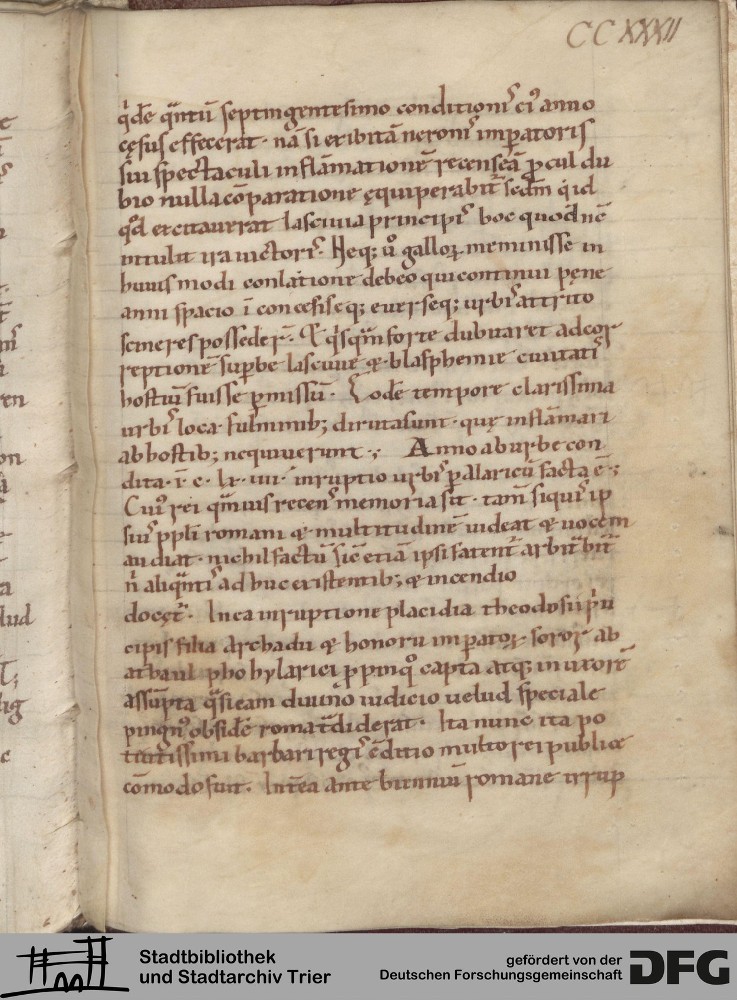 CCXXXII
q̇dē q̄ntū septingentesimo conditionis̄ ei᷒ anno
cęsus effecerat · nā si exibitā neroni᷒ imꝑatoris
sui spectaculi inflāmationē recenseā ꝓcul du
bio nulla cōparatione ęquiperabit̄ secdm̄ q̇d
qd̄ excitauerat lasciuia principis̄ hoc quod nc̄
intulit ira uictoris̄ · Neq; ů galloꝝ meminisse in
huius modi conlatione debeo qui continui pęne
anni spacio īconcesiseq; euerseq; urbis̄ attrito
scineres posseder̄ · Et q̇sq̄m forte dubitaret ad cor
reptionē suꝑbe lasciuie & blasphemie ciuitatis̄
hostiū fuisse ꝑmissū · Eodē tempore clarissima
urbis̄ loca fulminib; diruta sunt · quę inflāmari
ab hostib; nequiuerunt ·; Anno ab urbe con
dita · ī · c · lx · iiii · inruptio urbis̄ ꝑ alaricū facta ē ·;
Cui᷒ rei q̄muis recens̄ memoria sit · tam̄ siquis̄ ip
sius̄ ppli romani & multitudinē uideat & uocem
audiat · nichil factū sic̄ etiā ipsi fatent̄ arbit̄bit̄
n̄ aliq̄ntis̄ adhuc existentib; & incendio
docęt̄ · In ea inruptione placidia theodosii p̄n
cipis filia archadii & honorii imꝑatoꝝ soror ab
athaul pho hylarici ꝓpinqo capta atq; in uxorē
assūpta q̄si eam diuino iudicio uelud speciale
pinqn̄ obsidē roma t̄diderat · Ita nunc ita po
tentissimi barbari regis̄ c̄ditio multo rei publice
cōmodo fuit · Intēa ante biennuū romane irrup
Stadtbibliothek
und Stadtarchiv Trier
gefördert von der
Deutschen Forschungsgemeinschaft
DFG